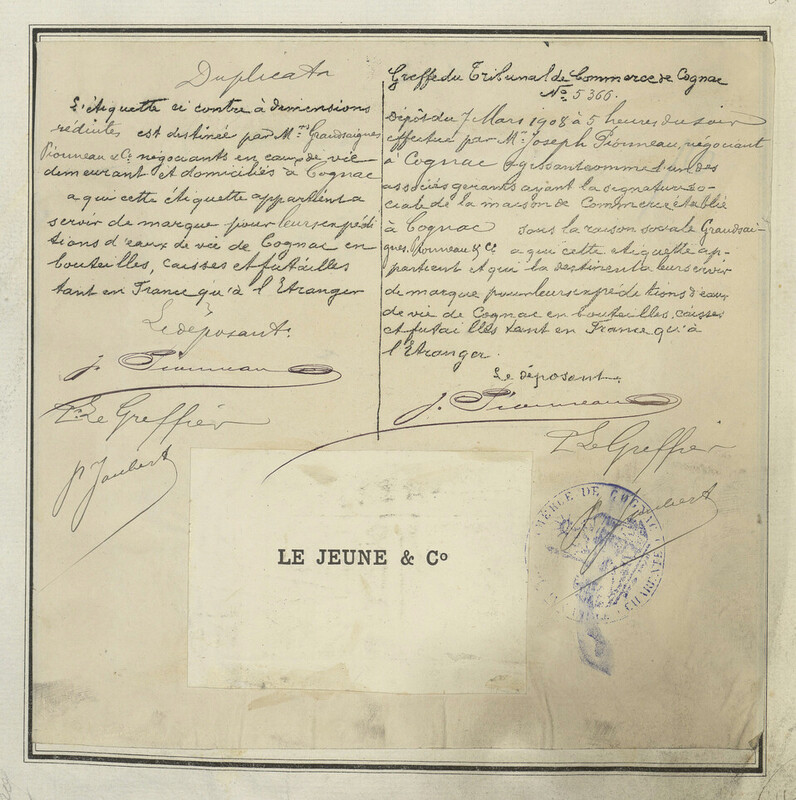 Duplicata
L'étiquette ci contre à demensions
réduites est destinée par Mrs Grandsaignes
Pionneau & Cie négociants en eaux de vie
demeurant et domiciliés à Cognac
a qui cette étiquette appartient a
servir de marque pour leurs expédi
tions d'eaux de vie de Cognac en
bouteilles, caisses et futailles
tant en France qu'à l'Etranger
Le déposant.
J. Pionneau
Le Greffier
Joubert
Greffe du Tribunal de Commerce de Cognac
No 5366.
Dépôt du 7 Mars 1908 à 5 heures du soir
effectué par Mr Joseph Pionneau, négociant
à Cognac agissant comme l'un des
associés gerants ayant la signature so-
ciale de la maison de Commerce établie
à Cognac sous la raison sociale Grandsai-
gnes, Pionneau & Cie a qui cette etiquette ap-
partient et qui la destinent a leur servir
de marque pour leurs expéditions d'eaux
de vie de Cognac en bouteilles, caisses
et futailles tant en France qu'à
l'Etranger.
Le déposant.
J. Pionneau
Le Greffier
Joubert
LE JEUNE & Co
COMMERCE DE COGNAC
CHARENTE